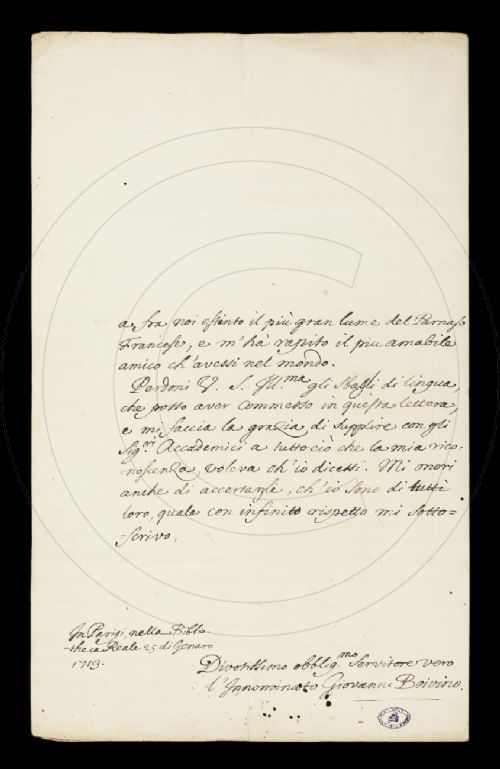 a fra noi estinto il più gran lume del Parnaso
Francese, e m'hà rapito il più amabile
amico ch'avessi nel mondo.
Perdoni V. S. Ill.ma gli sbagli di lingua,
che posso aver commesso in questa lettera,
e mi faccia la grazia di supplire con gli
Sig.ri Accademici a tutto ciò che la mia rico-
-noscenza voleva ch'io dicessi. Mi onori
anche di accertargli, ch'io sono di tutti
loro, quale con infinito rispetto mi sotto=
=scrivo.
In Parigi, nella Biblio-
-theca Reale 25 di Genaro
1713.
Divotissimo obblig.mo Servitore vero
l'Innominato Giovanni Boivino.